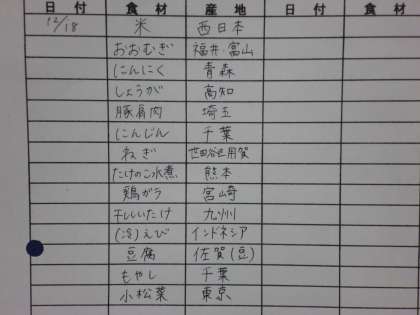 日付 食材 産地 日付 食材
12/18 米 西日本
おおむぎ 福井 富山
にんにく 青森
しょうが 高知
豚肩肉 埼玉
にんじん 千葉
ねぎ 世田谷区用賀
たけのこ水煮 熊本
鶏ガラ 宮崎
干ししいたけ 九州
(冷)えび インドネシア
豆腐 佐賀(豆)
もやし 千葉
小松菜 東京